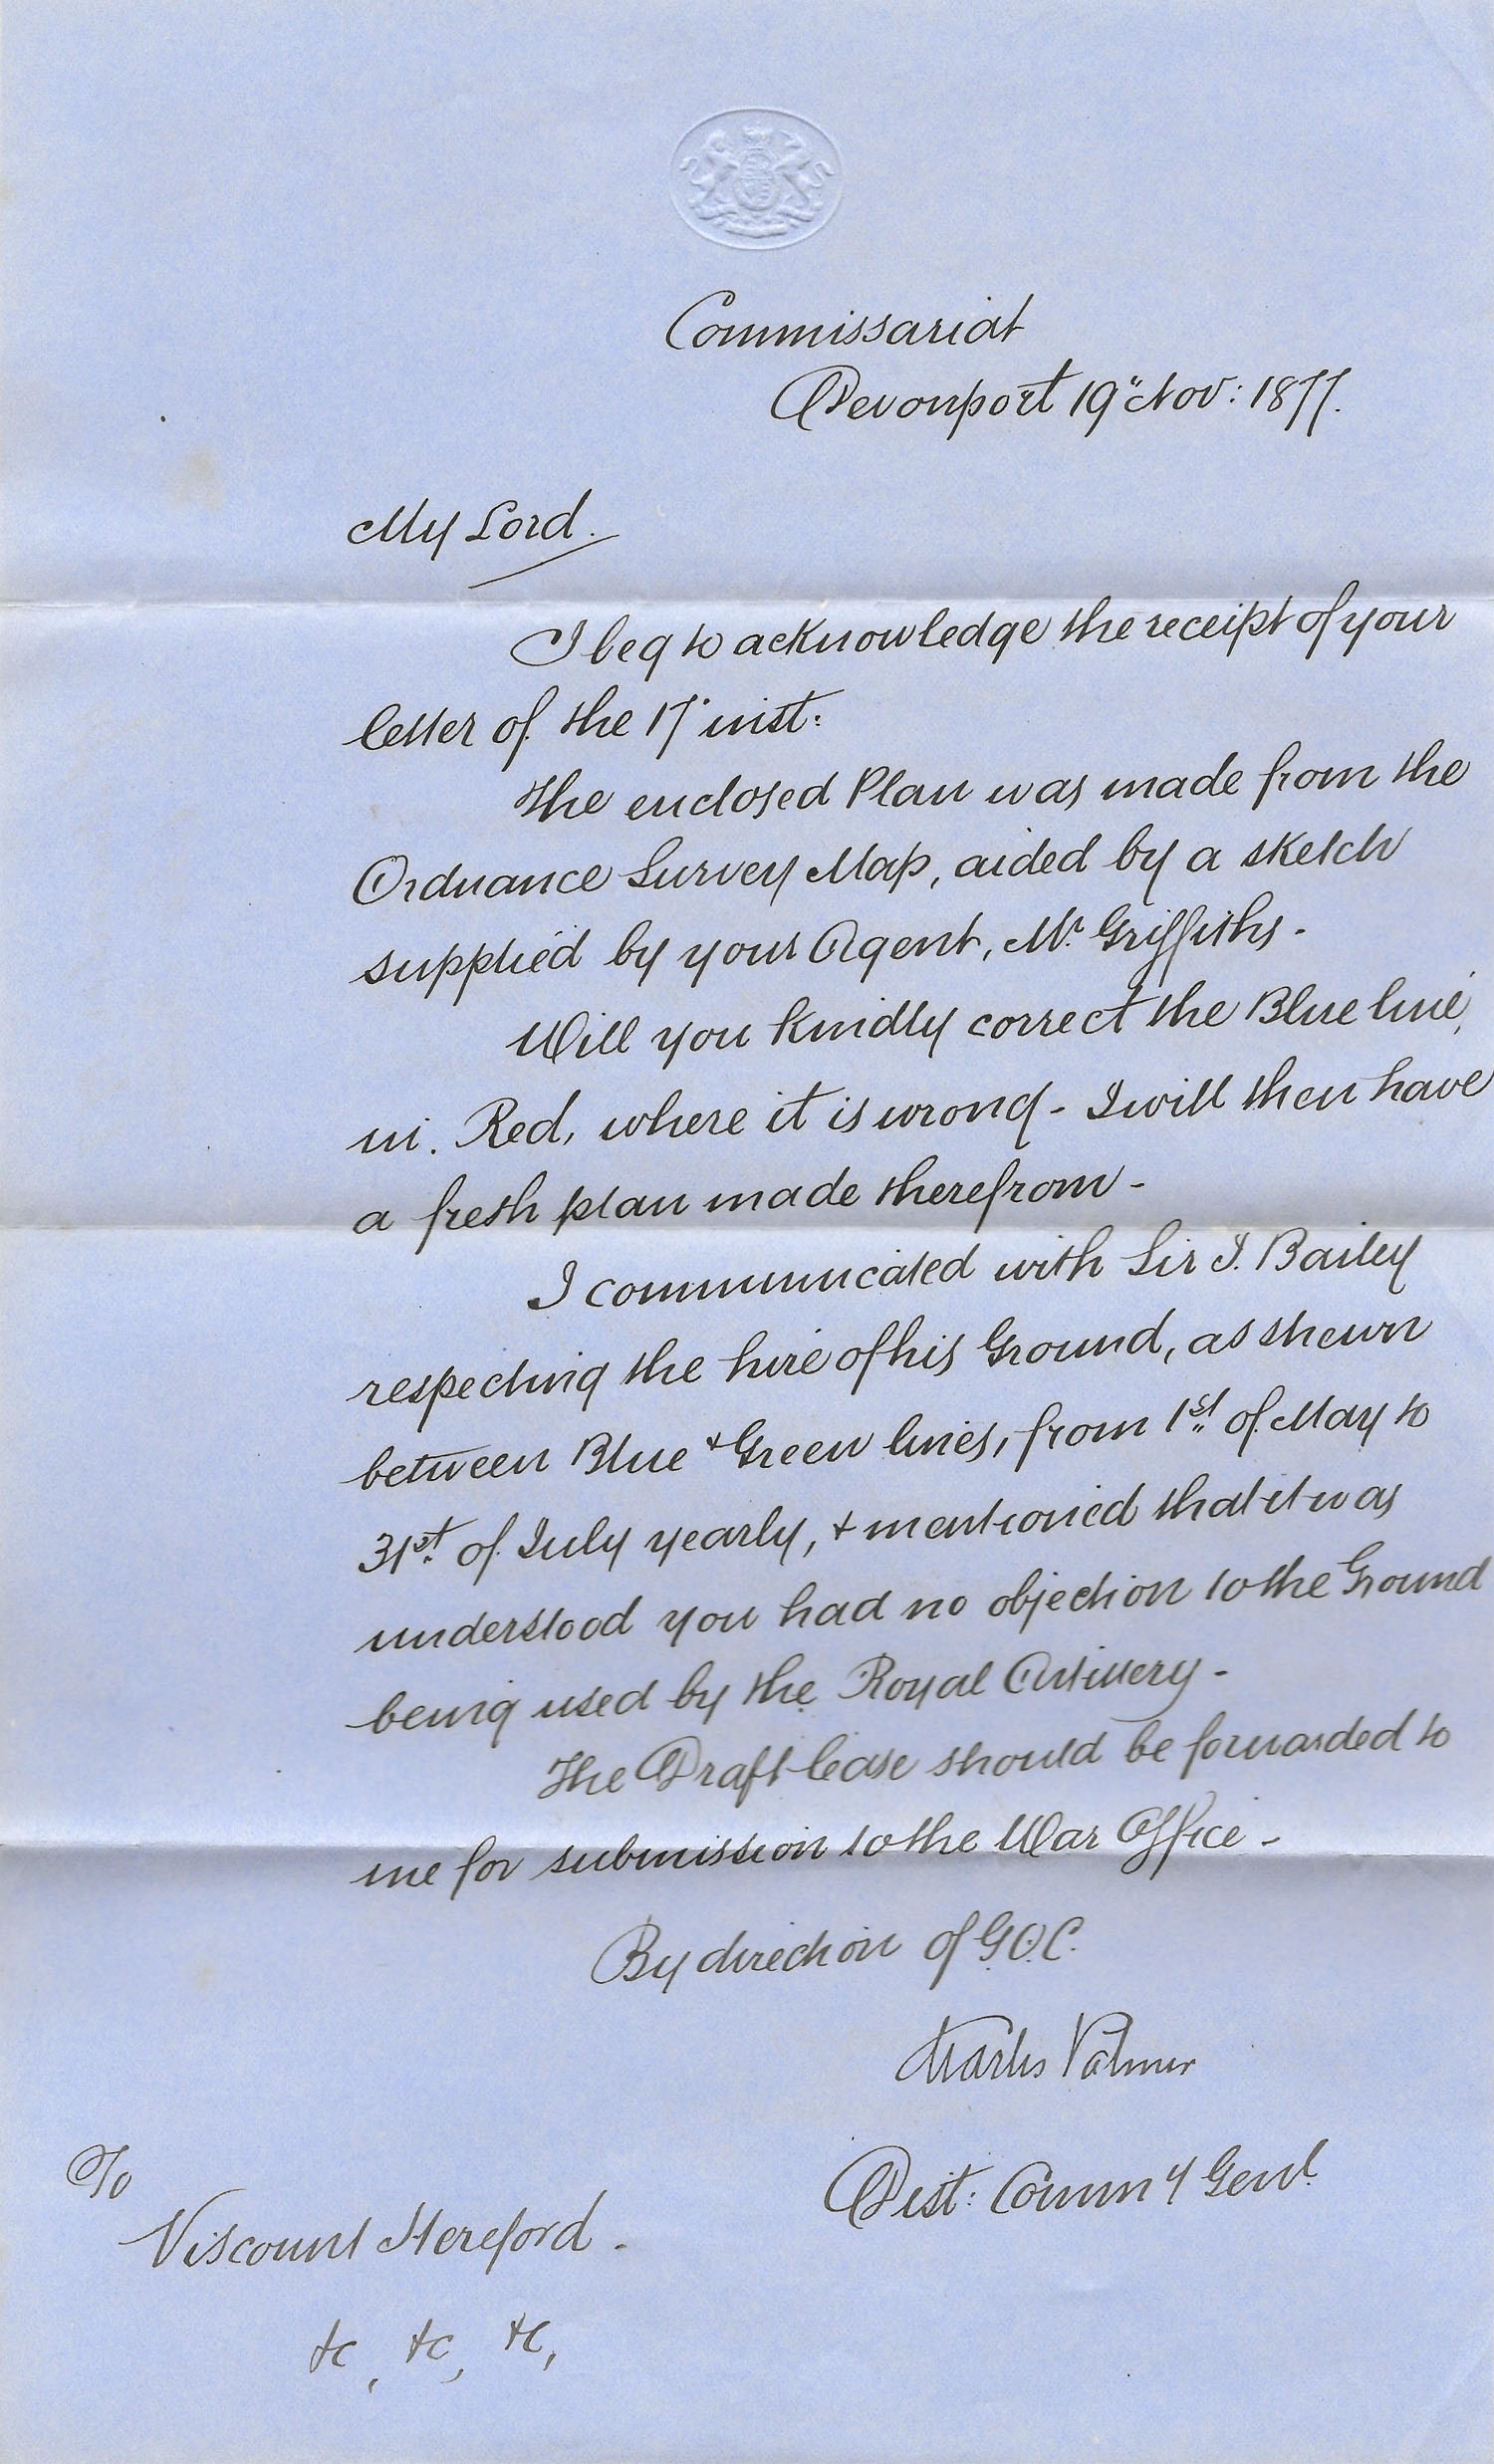 Commissariat
Devonport 19" Nov: 1877.
My Lord.
I beg to acknowledge the receipt of your
letter of the 17' inst:
The enclosed Plan was made from the
Ordnance Survey Map, aided by a sketch
supplied by your Agent, Mr. Griffiths -
Will you kindly correct the Blue line,
in Red, where it is wrong - I will then have
a fresh plan made therefrom -
I communicated with Sir J. Bailey
respecting the hire of his Ground, as shewn
between Blue & Green lines, from 1st of May to
31st of July yearly, & mentioned that it was
understood you had no objection to the Ground
being used by the Royal Artillery -
The Draft lease should be forwarded to
me for submission to the War Office -
By direction of G.O.C.
Charles Palmer
Dist: Comm'y Genl.
To
Viscount Hereford.
&c, &c, &c,